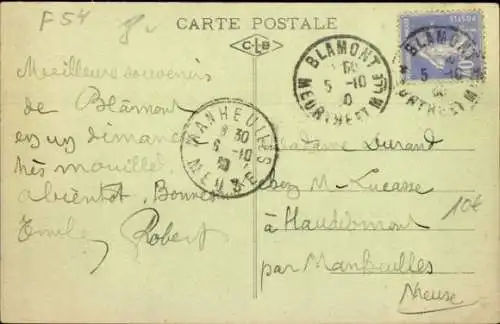 F 54
CARTE POSTALE
CLB
BLAMONT
5 -10
30
MEURTHE ET MLLE
BLAMONT
5 -10
30
MANHEULLES
8 30
6 -10
30
MEUSE
Meilleurs souvenirs
de Blâmont
en un dimanche
très mouillé
à bientôt. Bonne
Emile Robert
Madame Durand
chez M. Lucasse
à Haudiomont
par Manheulles
Meuse
10€